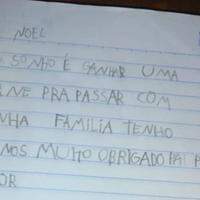 NOEL
SONHO É GANHAR UMA
NE PRA PASSAR COM
NHA FAMILIA TENHO
NOS MUITO OBRIGADO PAI P
OR